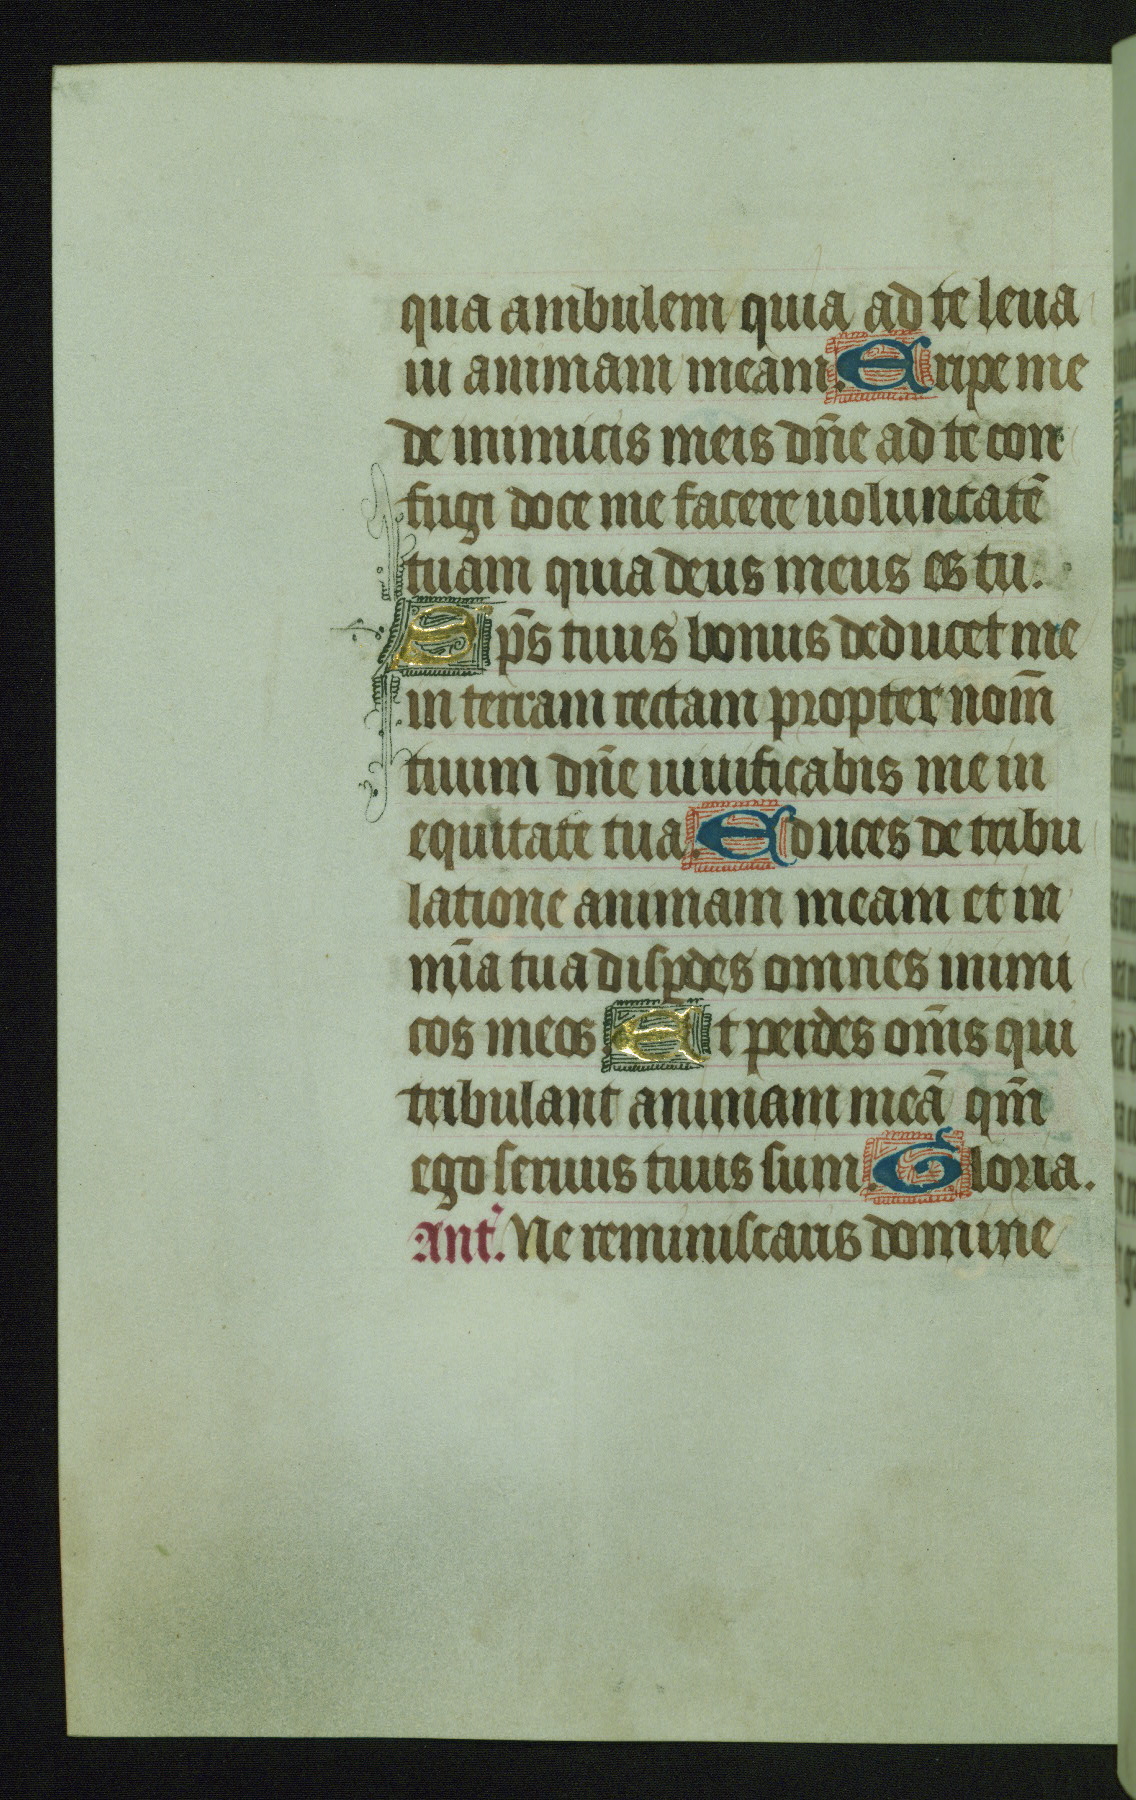 qua ambulem quia ad te leua
ui animam meam. Eripe me
de inimicis meis dn̄e ad te con
fugi doce me facere uoluntatē
tuam quia deus meus es tu.
S p̄s tuus bonus deducet me
in terram rectam propter nom̄
tuum dn̄e uiuificabis me in
equitate tua. Educes de tribu
latione animam meam et in
mīa tua disꝑdes omnes inimi
cos meos. Et perdes om̄s qui
tribulant animam meā qm̄
ego seruus tuus sum. Gloria.
Ant. Ne reminiscaris domine